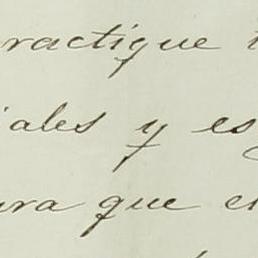 ractique
iales y es
ura que e